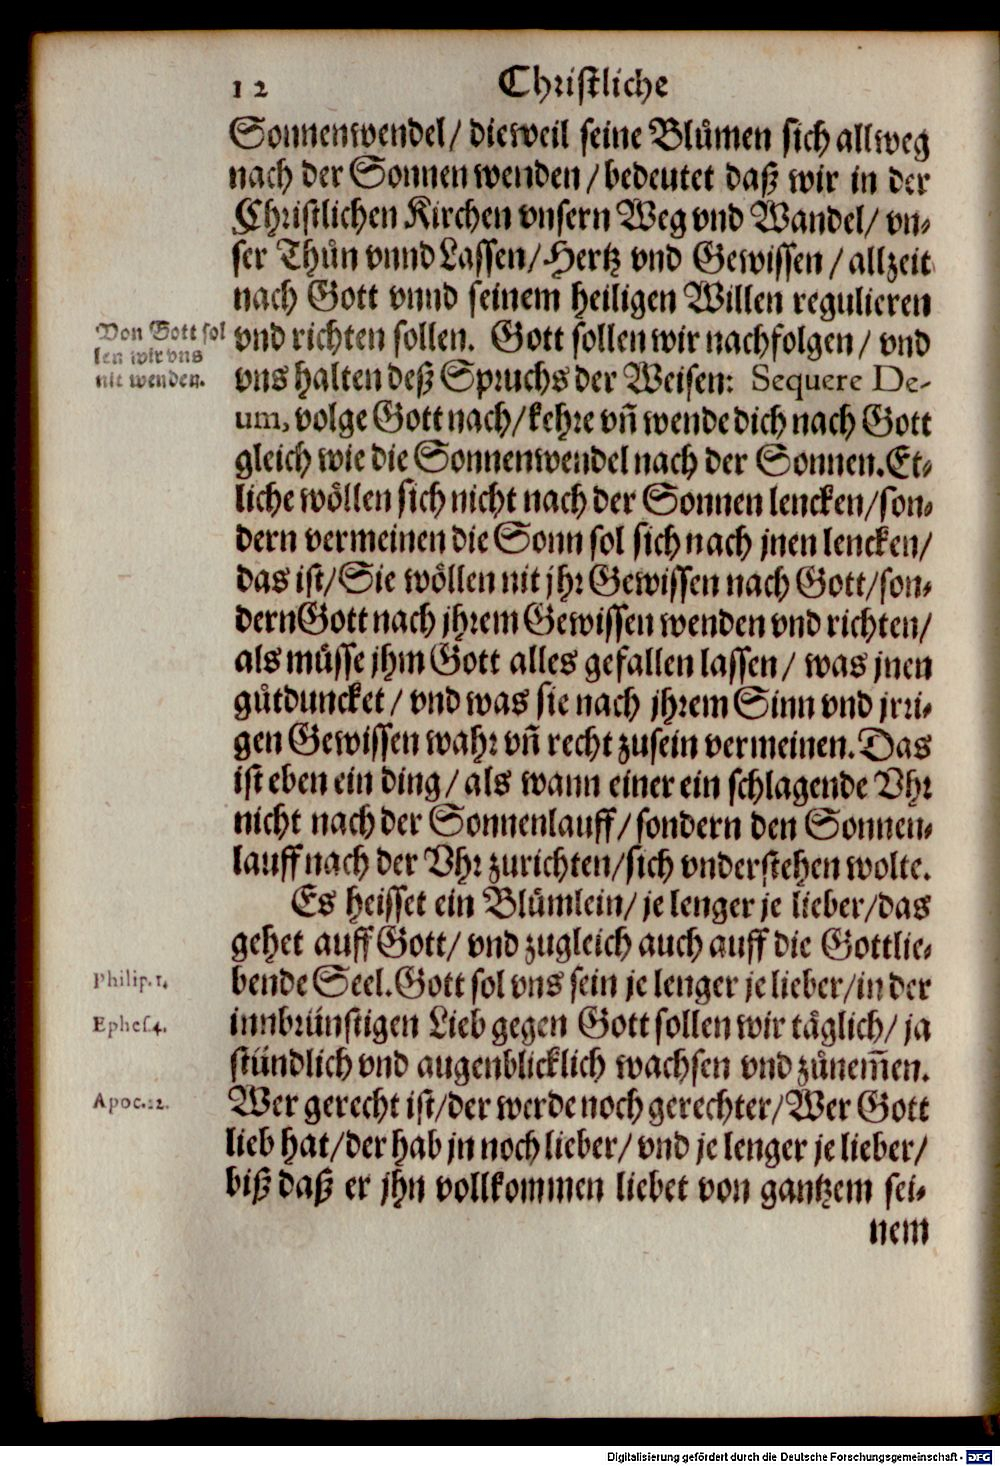 12 Christliche
Sonnenwendel/ dieweil seine Blůmen sich allweg
nach der Sonnen wenden/ bedeutet daß wir in der
Christlichen Kirchen vnsern Weg vnd Wandel/ vn-
ser Thůn vnnd Lassen/ Hertz vnd Gewissen/ allzeit
nach Gott vnnd seinem heiligen Willen regulieren
vnd richten sollen. Gott sollen wir nachfolgen/ vnd
Von Gott sol
len wir vns
nit wenden.
vns halten deß Spruchs der Weisen: Sequere De-
um, volge Gott nach/ kehre vñ wende dich nach Gott
gleich wie die Sonnenwendel nach der Sonnen. Et-
liche wöllen sich nicht nach der Sonnen lencken/ son-
dern vermeinen die Sonn sol sich nach jnen lencken/
das ist/ Sie wöllen nit jhr Gewissen nach Gott/ son-
dern Gott nach jhrem Gewissen wenden vnd richten/
als müsse jhm Gott alles gefallen lassen/ was jnen
gůtduncket/ vnd was sie nach jhrem Sinn vnd jrri-
gen Gewissen wahr vñ recht zusein vermeinen. Das
ist eben ein ding/ als wann einer ein schlagende Vhr
nicht nach der Sonnenlauff/ sondern den Sonnen-
lauff nach der Vhr zurichten/ sich vnderstehen wolte.
Es heisset ein Blůmlein/ je lenger je lieber/ das
gehet auff Gott/ vnd zugleich auch auff die Gottlie-
bende Seel. Gott sol vns sein je lenger je lieber/ in der
Philip. 1.
innbrünstigen Lieb gegen Gott sollen wir täglich/ ja
Ephes. 4.
stündlich vnd augenblicklich wachsen vnd zůnem̃en.
Wer gerecht ist/ der werde noch gerechter/ Wer Gott
Apoc. 22.
lieb hat/ der hab jn noch lieber/ vnd je lenger je lieber/
biß daß er jhn vollkommen liebet von gantzem sei-
nem
Digitalisierung gefördert durch die Deutsche Forschungsgemeinschaft - DFG